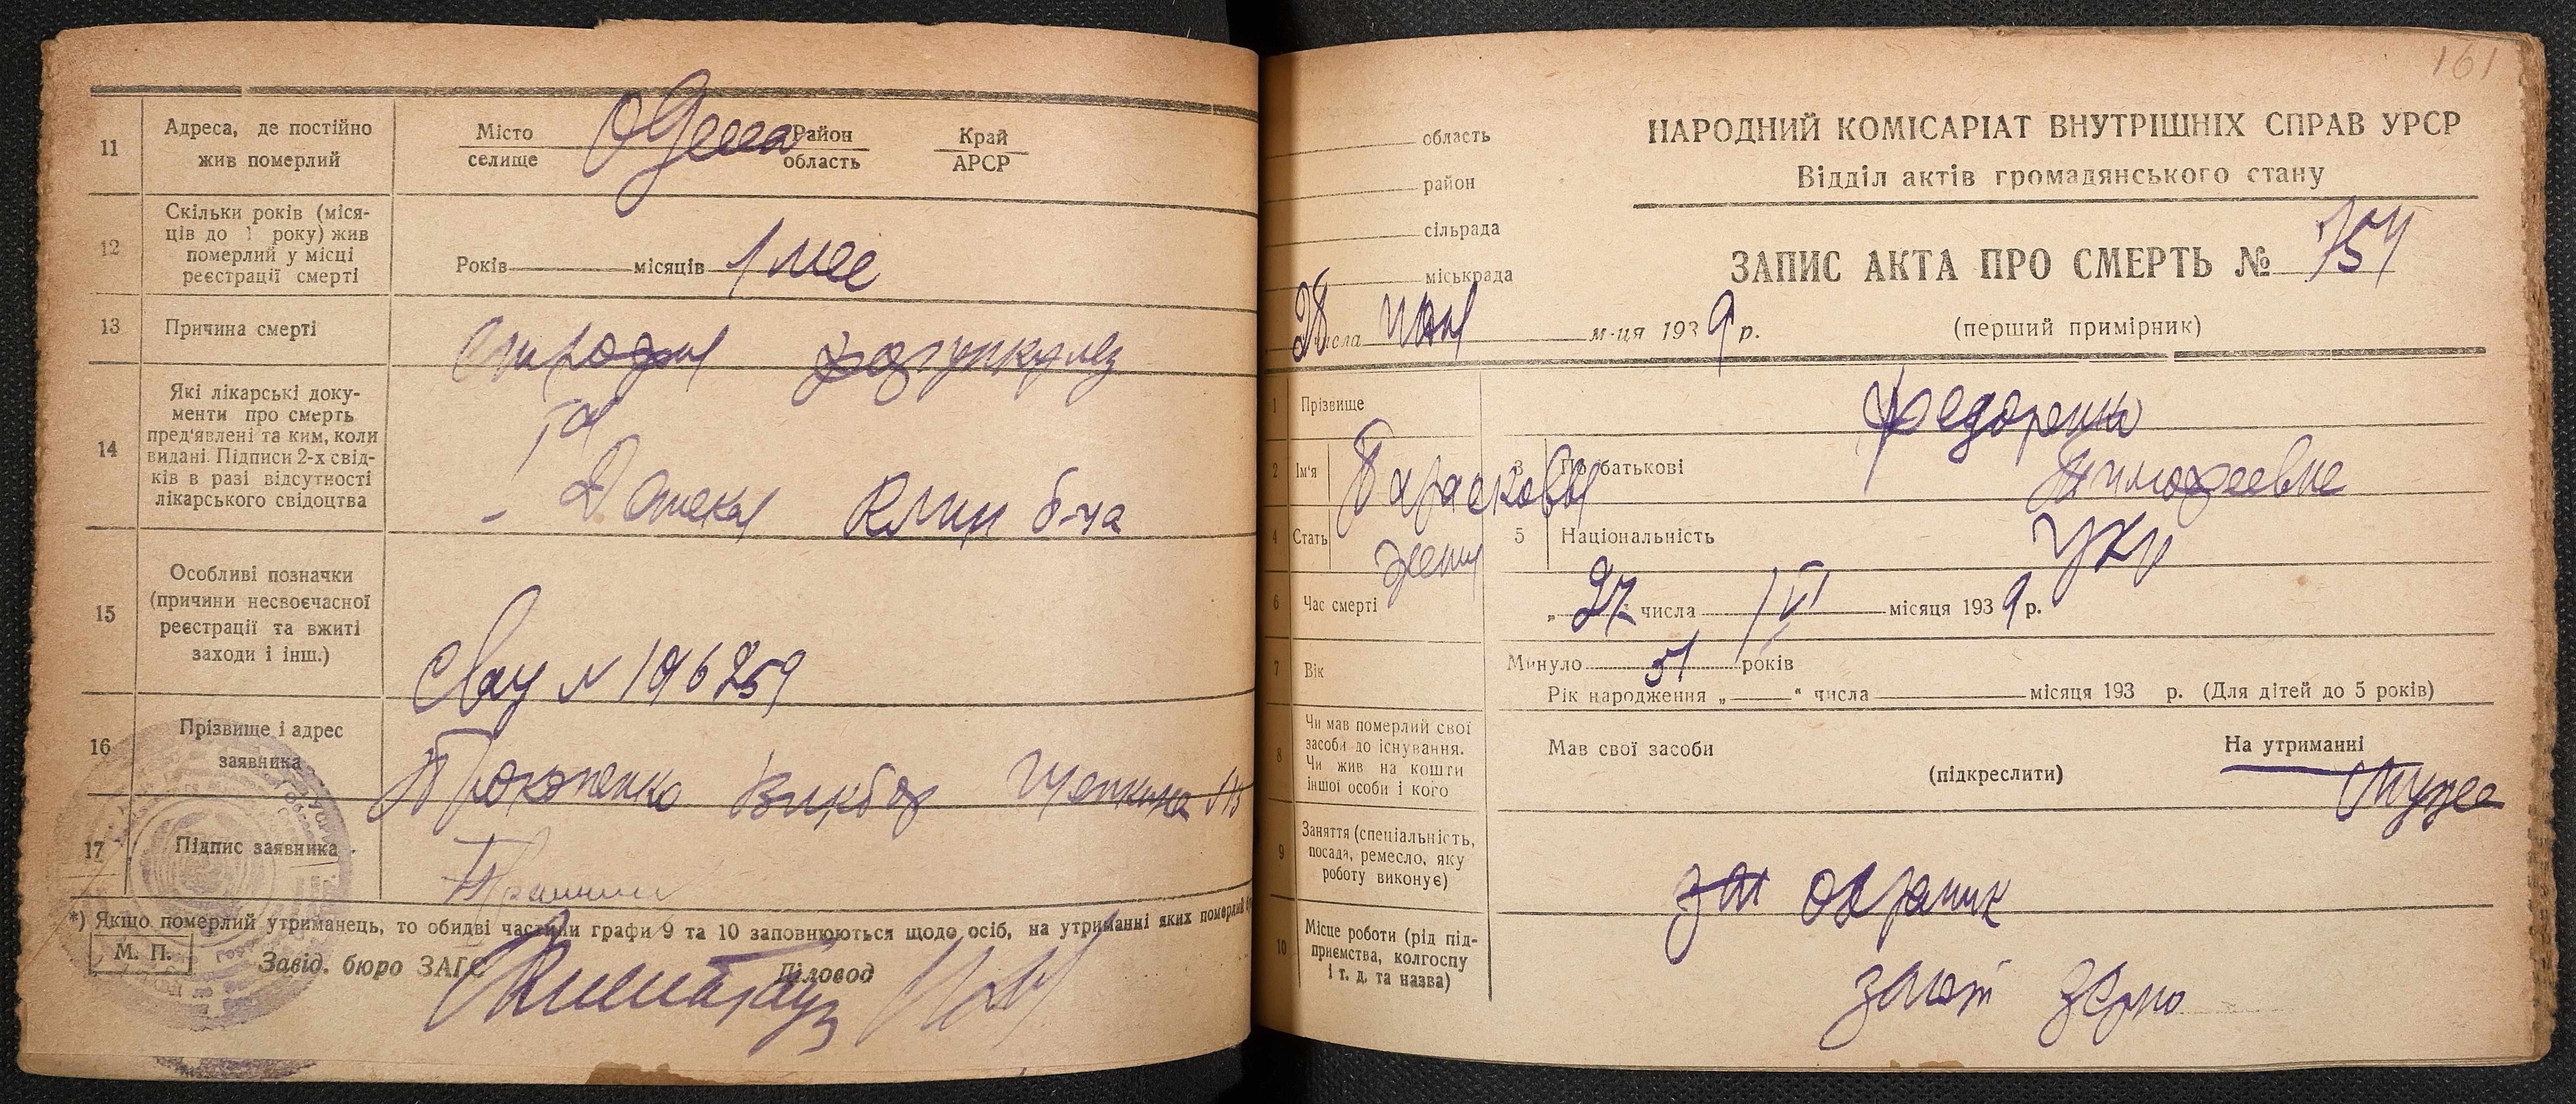 11
Адреса, де постійно
жив померлий
Місто
селище
Одесса
Район
область
Край
АРСР
12
Скільки років (міся-
ців до 1 року) жив
померлий у місці
реєстрації смерті
Років
місяців
1 мес
13
Причина смерті
14
Які лікарські доку-
менти про смерть
пред'явлені та ким, коли
видані. Підписи 2-х свід-
ків в разі відсутності
лікарського свідоцтва
Клин б-ца
15
Особливі позначки
(причини несвоєчасної
реєстрації та вжиті
заходи і інш.)
16
Прізвище і адрес
заявника
Виктор Щепкина
17
Підпис заявника
*) Якщо померлий утриманець, то обидві частини графи 9 та 10 заповнюються щодо осіб, на утриманні яких померлий
М. П.
Завід. бюро ЗАГС
Діловод
161
область
район
сільрада
міськрада
28 числа м-ця 1939 р.
НАРОДНИЙ КОМІСАРІАТ ВНУТРІШНІХ СПРАВ УРСР
Відділ актів громадянського стану
ЗАПИС АКТА ПРО СМЕРТЬ № 754
(перший примірник)
1
Прізвище
Федоренко
2
Ім'я
Парасковья
3
По батькові
Тимофеевна
4
Стать
жен
5
Національність
Укр
6
Час смерті
„ 27 " числа VI місяця 1939 р.
7
Вік
Минуло 51 років
Рік народження „ “ числа місяця 193 р. (Для дітей до 5 років)
8
Чи мав померлий свої
засоби до існування.
Чи жив на кошти
іншої особи і кого
Мав свої засоби
(підкреслити)
На утриманні
мужа
9
Заняття (спеціальність,
посада, ремесло, яку
роботу виконує)
10
Місце роботи (рід під-
приємства, колгоспу
і т. д. та назва)